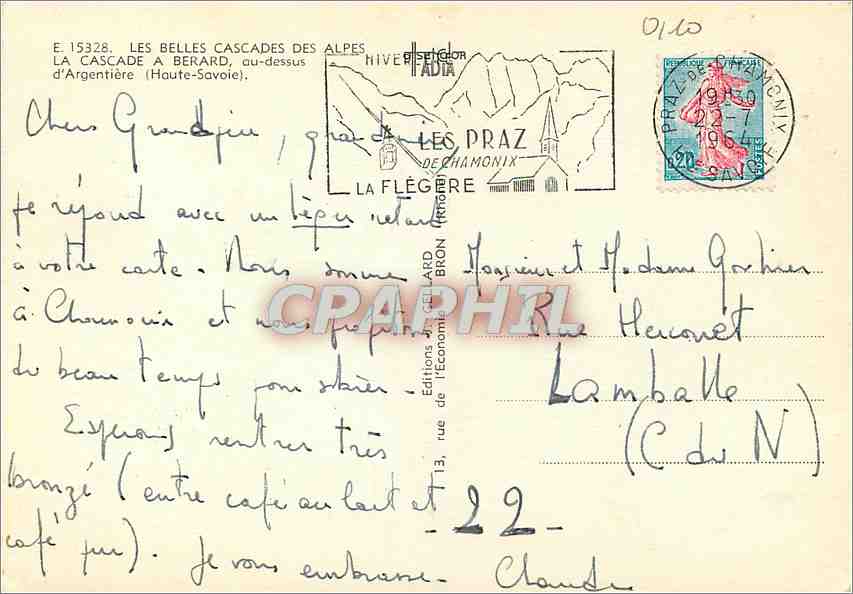 E. 15328. LES BELLES CASCADES DES ALPES
LA CASCADE A BERARD, au-dessus
d'Argentière (Haute-Savoie).
0,10
HIVER ETE
LES PRAZ
DE CHAMONIX
LA FLÉGÈRE
REPUBLIQUE FRANÇAISE
0,20
POSTES
PRAZ-DE-CHAMONIX
19H30
22-7
1964
HTE SAVOIE
Chers Grandpère, grandmère,
Je répond avec un léger retard
à votre carte. Nous somme
à Chamonix et nous profitons
du beau temps pour skier.
Esperons rentrer très
bronzé (entre café au lait et
café pur). Je vous embrasse. Claude
Editions J. CELLARD
13, rue de l'Economie BRON (Rhône)
Monsieur et Madame
Rue
Lamballe
(C du N)
-22-
CPAPHIL